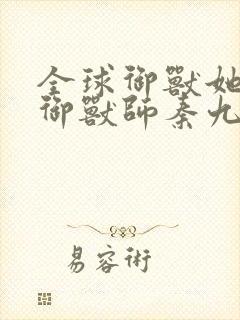 全球御獸她
御獸師秦九
易容術